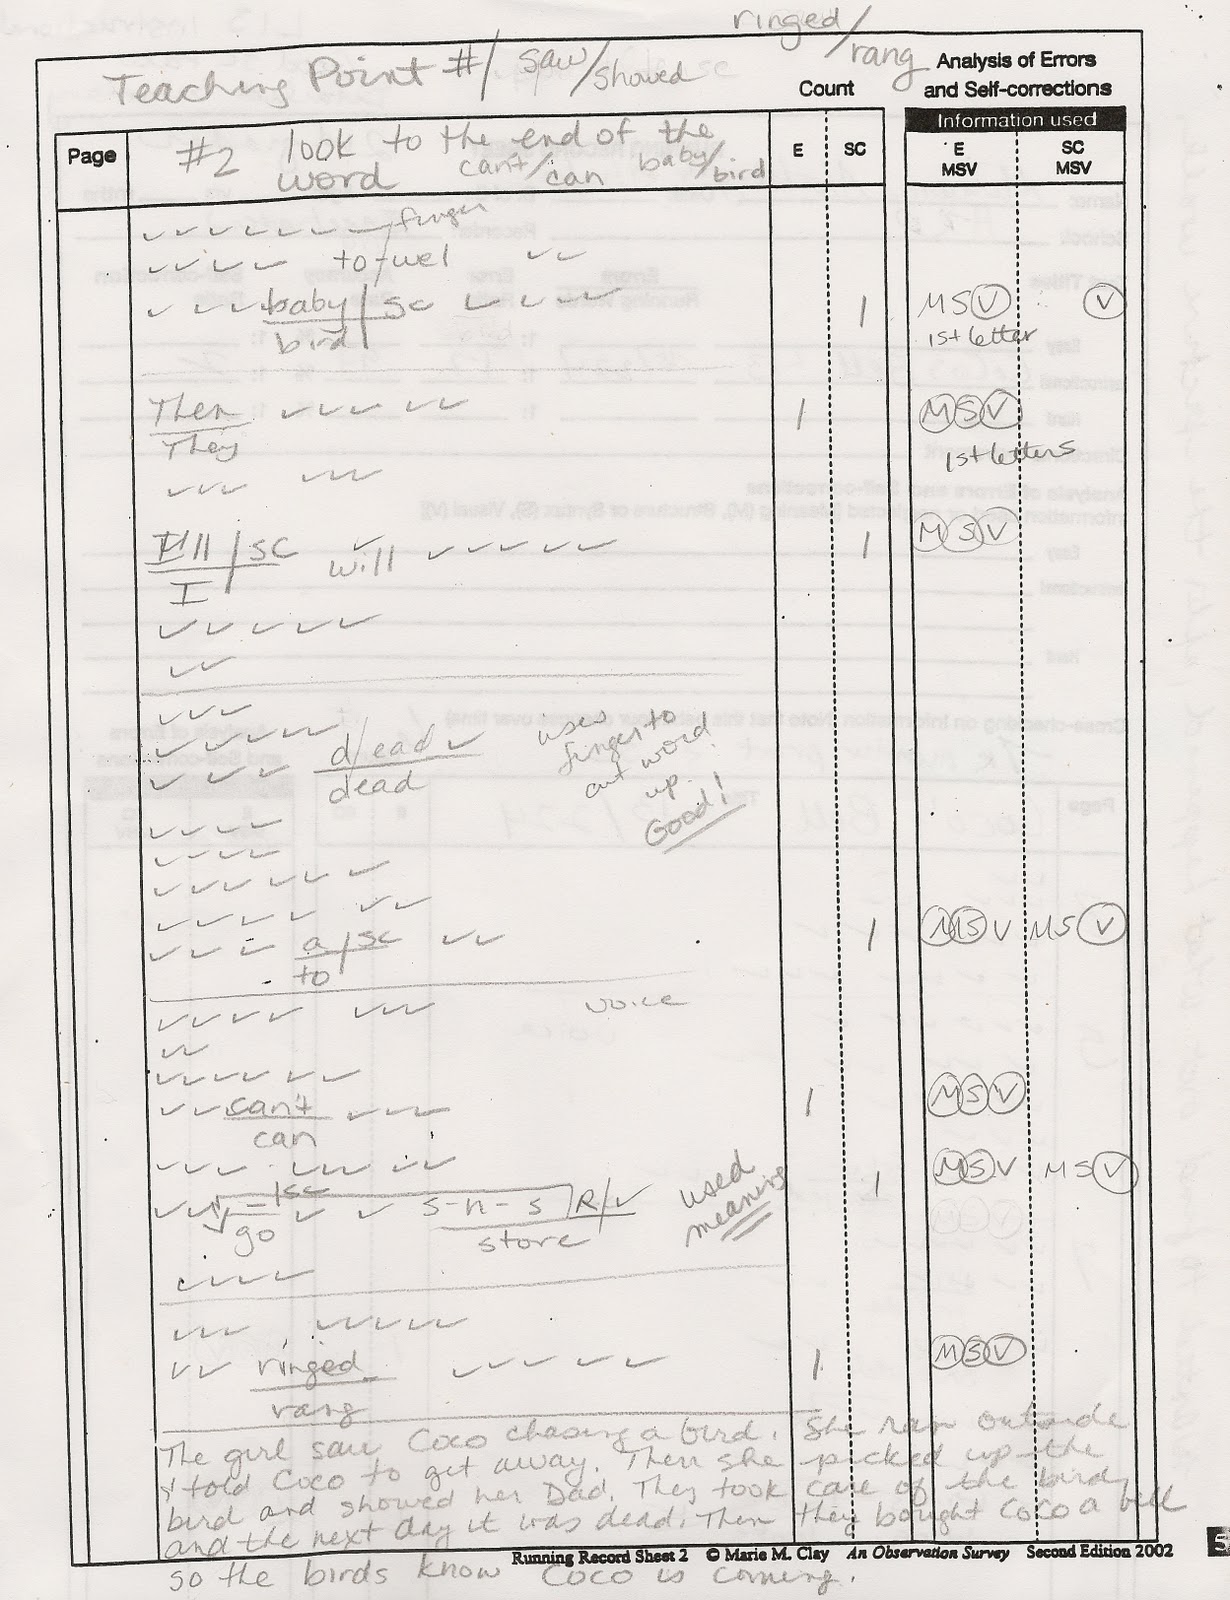 ringed/rang
Teaching Point #1 saw/showed
Count
Analysis of Errors and Self-corrections
Page
#2 look to the end of the word can't/can baby/bird
E
SC
Information used
E MSV
SC MSV
✓ ✓ ✓ ✓ ✓ ✓ ✓ finger
✓ ✓ ✓ ✓ to/wel ✓ ✓
✓ ✓ ✓ baby/SC ✓ ✓ ✓ ✓ 1 MSV V
bird 1st letter
Then ✓ ✓ ✓ ✓ ✓ 1 MSV
They 1st letters
✓ ✓ ✓ ✓ ✓ ✓
I'll/SC ✓ will ✓ ✓ ✓ ✓ ✓ 1 MSV
I
✓ ✓ ✓ ✓ ✓
✓ ✓
✓ ✓ ✓
✓ ✓ ✓ ✓ ✓
✓ ✓ ✓ d/ead ✓
dead
uses
finger to
cut word
up.
Good!
✓ ✓ ✓ ✓
✓ ✓ ✓ ✓
✓ ✓ ✓ ✓ ✓ ✓
✓ ✓ ✓ ✓ ✓ ✓ ✓
✓ ✓ ✓ a/SC ✓ ✓ 1 MSV MSV
to
✓ ✓ ✓ ✓ ✓ ✓ ✓ voice
✓ ✓
✓ ✓ ✓ ✓ ✓ ✓
✓ ✓ can't ✓ ✓ ✓ 1 MSV
can
✓ ✓ ✓ ✓ ✓ ✓ ✓ ✓ 1 MSV MSV
✓ ✓ SC ✓ ✓ s-n-s R/✓
go store
used
meaning
✓ ✓ ✓ ✓
✓ ✓ ✓ ✓ ✓ ✓ ✓ ✓
✓ ✓ ringed ✓ ✓ ✓ ✓ ✓ 1 MSV
rang
The girl saw Coco chasing a bird. She ran outside
& told Coco to get away. Then she picked up the
bird and showed her Dad. They took care of the bird
and the next day it was dead. Then they bought Coco a bell
so the birds know Coco is coming.
Running Record Sheet 2 © Marie M. Clay An Observation Survey Second Edition 2002